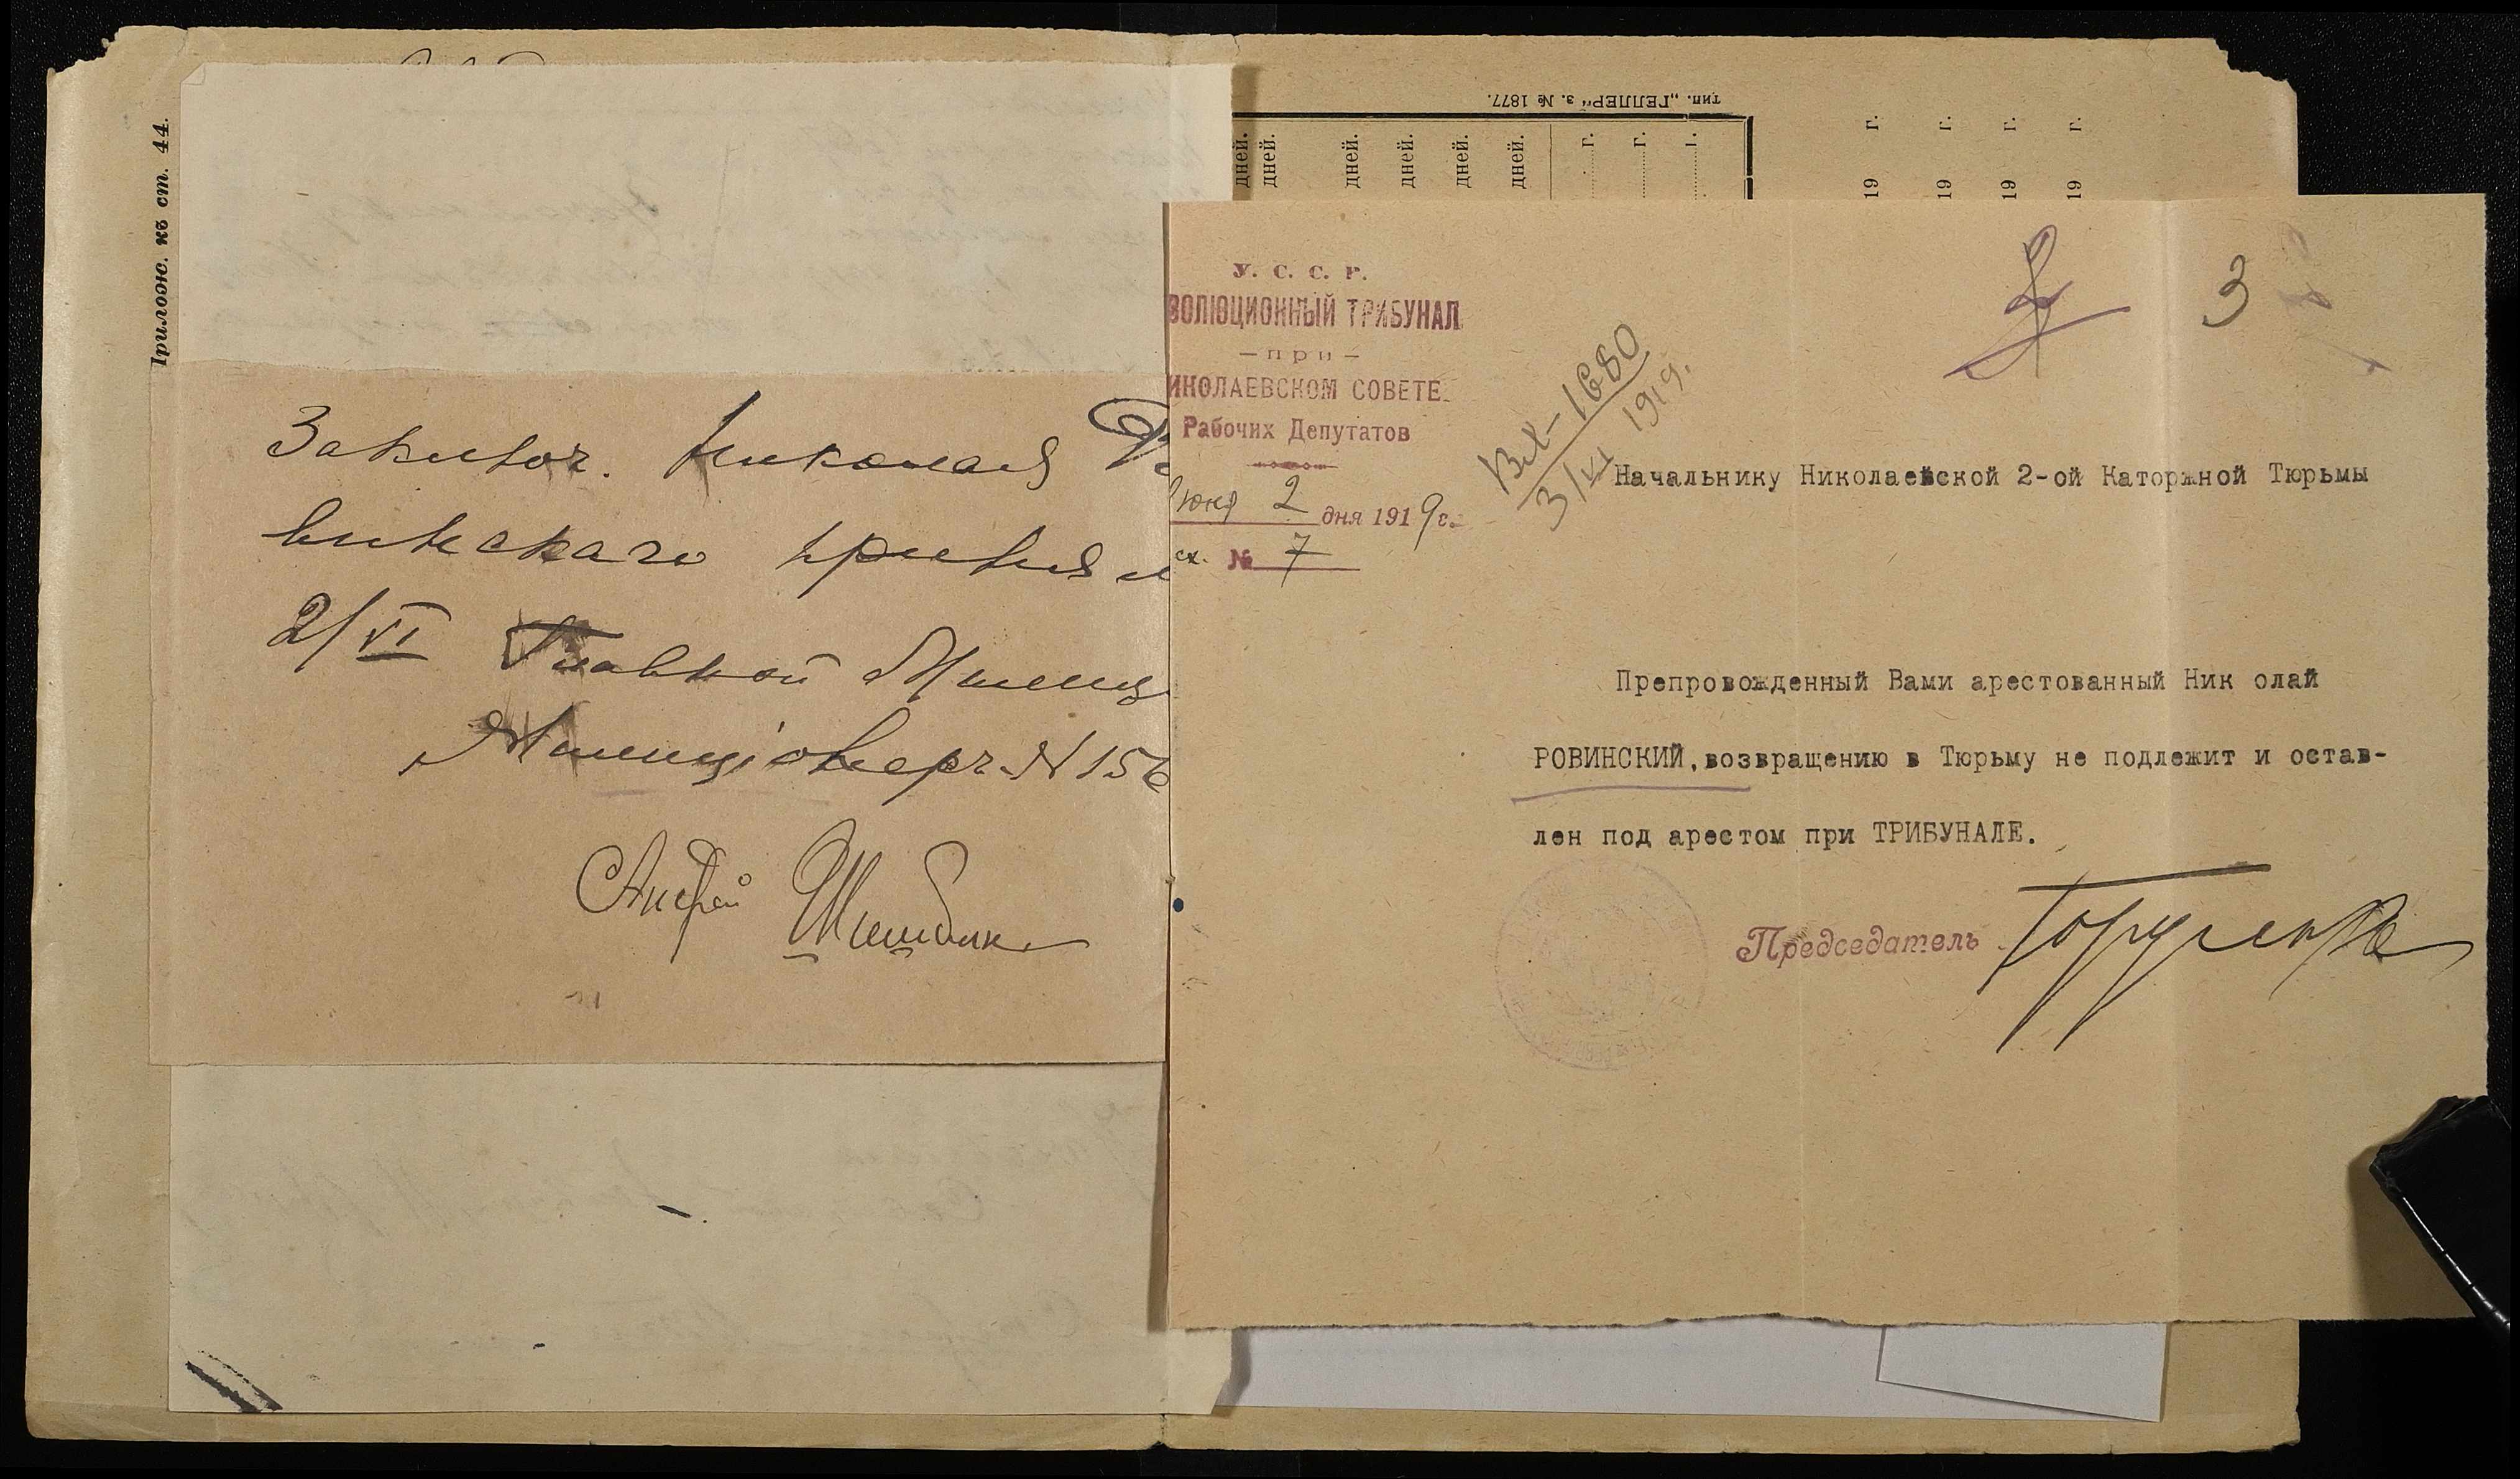 Приложю. къ ст. 44.
Заключ. Николая Ро
винскаго принял
2/VI Главной Милиц
Милиціонеръ N 156
Андрей
тип. „ГЕЛЛЕРЪ" з. № 1877.
дней.
дней.
дней.
дней.
дней.
дней.
г.
г.
г.
19 г.
19 г.
19 г.
19 г.
У. С. С. Р.
ВОЛЮЦИОННЫЙ ТРИБУНАЛ
— при —
ИКОЛАЕВСКОМ СОВЕТЕ
Рабочих Депутатов
Июня 2 дня 1919 г.
сх. № 7
Вх-1680
3/VI 1919.
3
Начальнику Николаевской 2-ой Каторжной Тюрьмы
Препровожденный Вами арестованный Ник олай
РОВИНСКИЙ, возвращению в Тюрьму не подлежит и остав-
лен под арестом при ТРИБУНАЛЕ.
Председатель